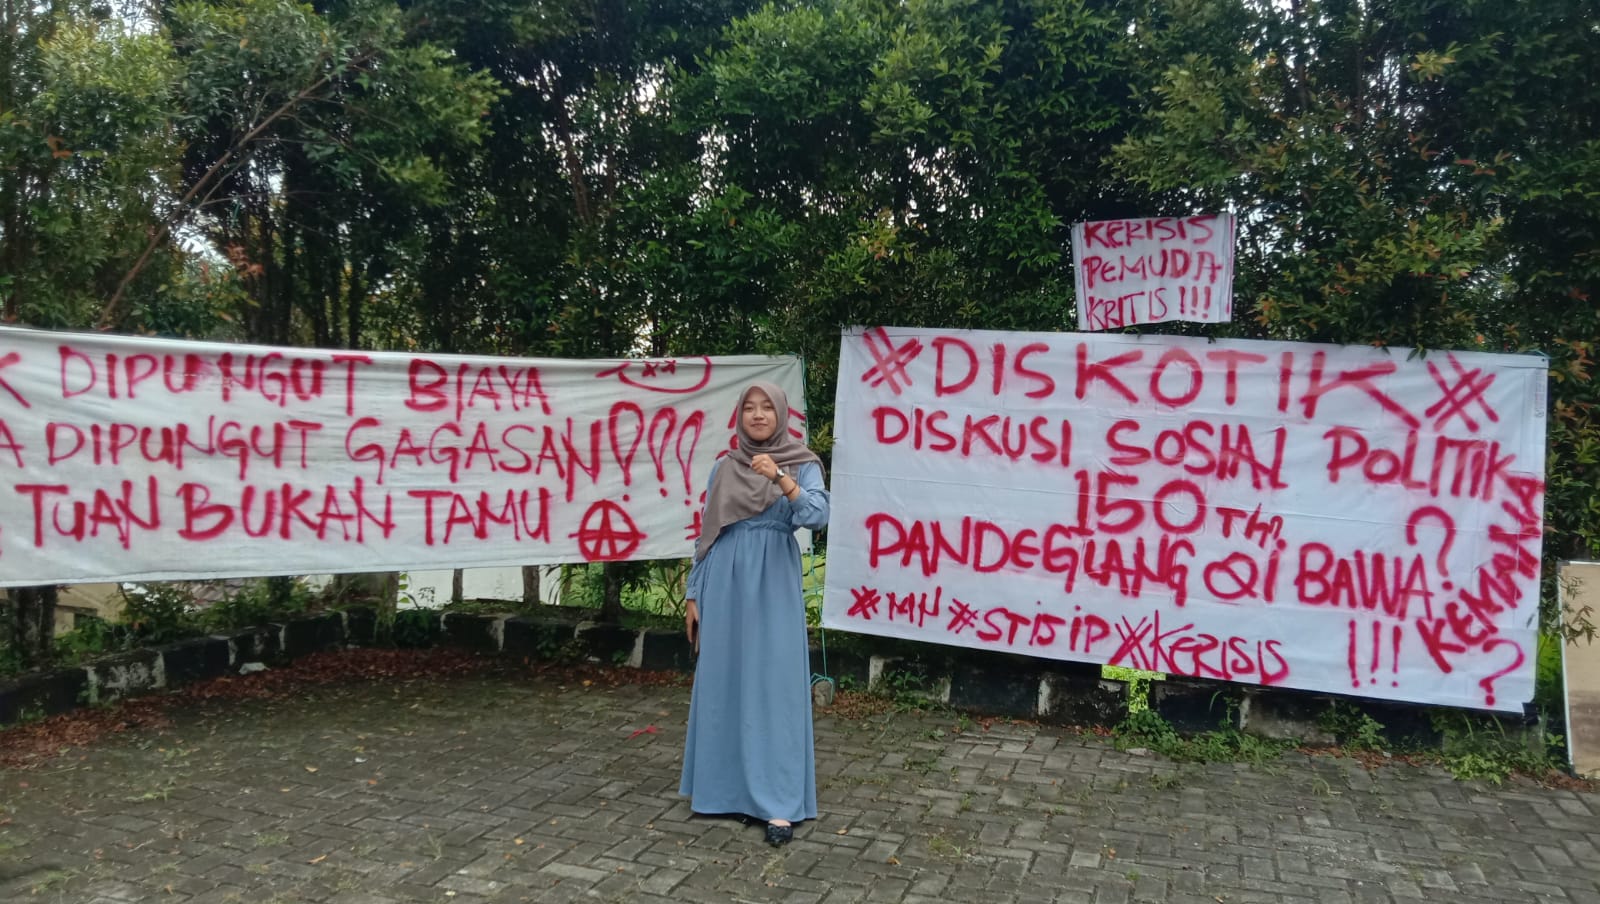 DIPUNGUT BIAYA
DIPUNGUT GAGASAN!???
TUAN BUKAN TAMU
KERISIS
PEMUDA
KRITIS!!!
#DISKOTIK#
DISKUSI SOSIAL POLITIK
150 Th?
PANDEGLANG QI BAWA?
KEMANA?
#MH #STISIP #KERISIS !!!